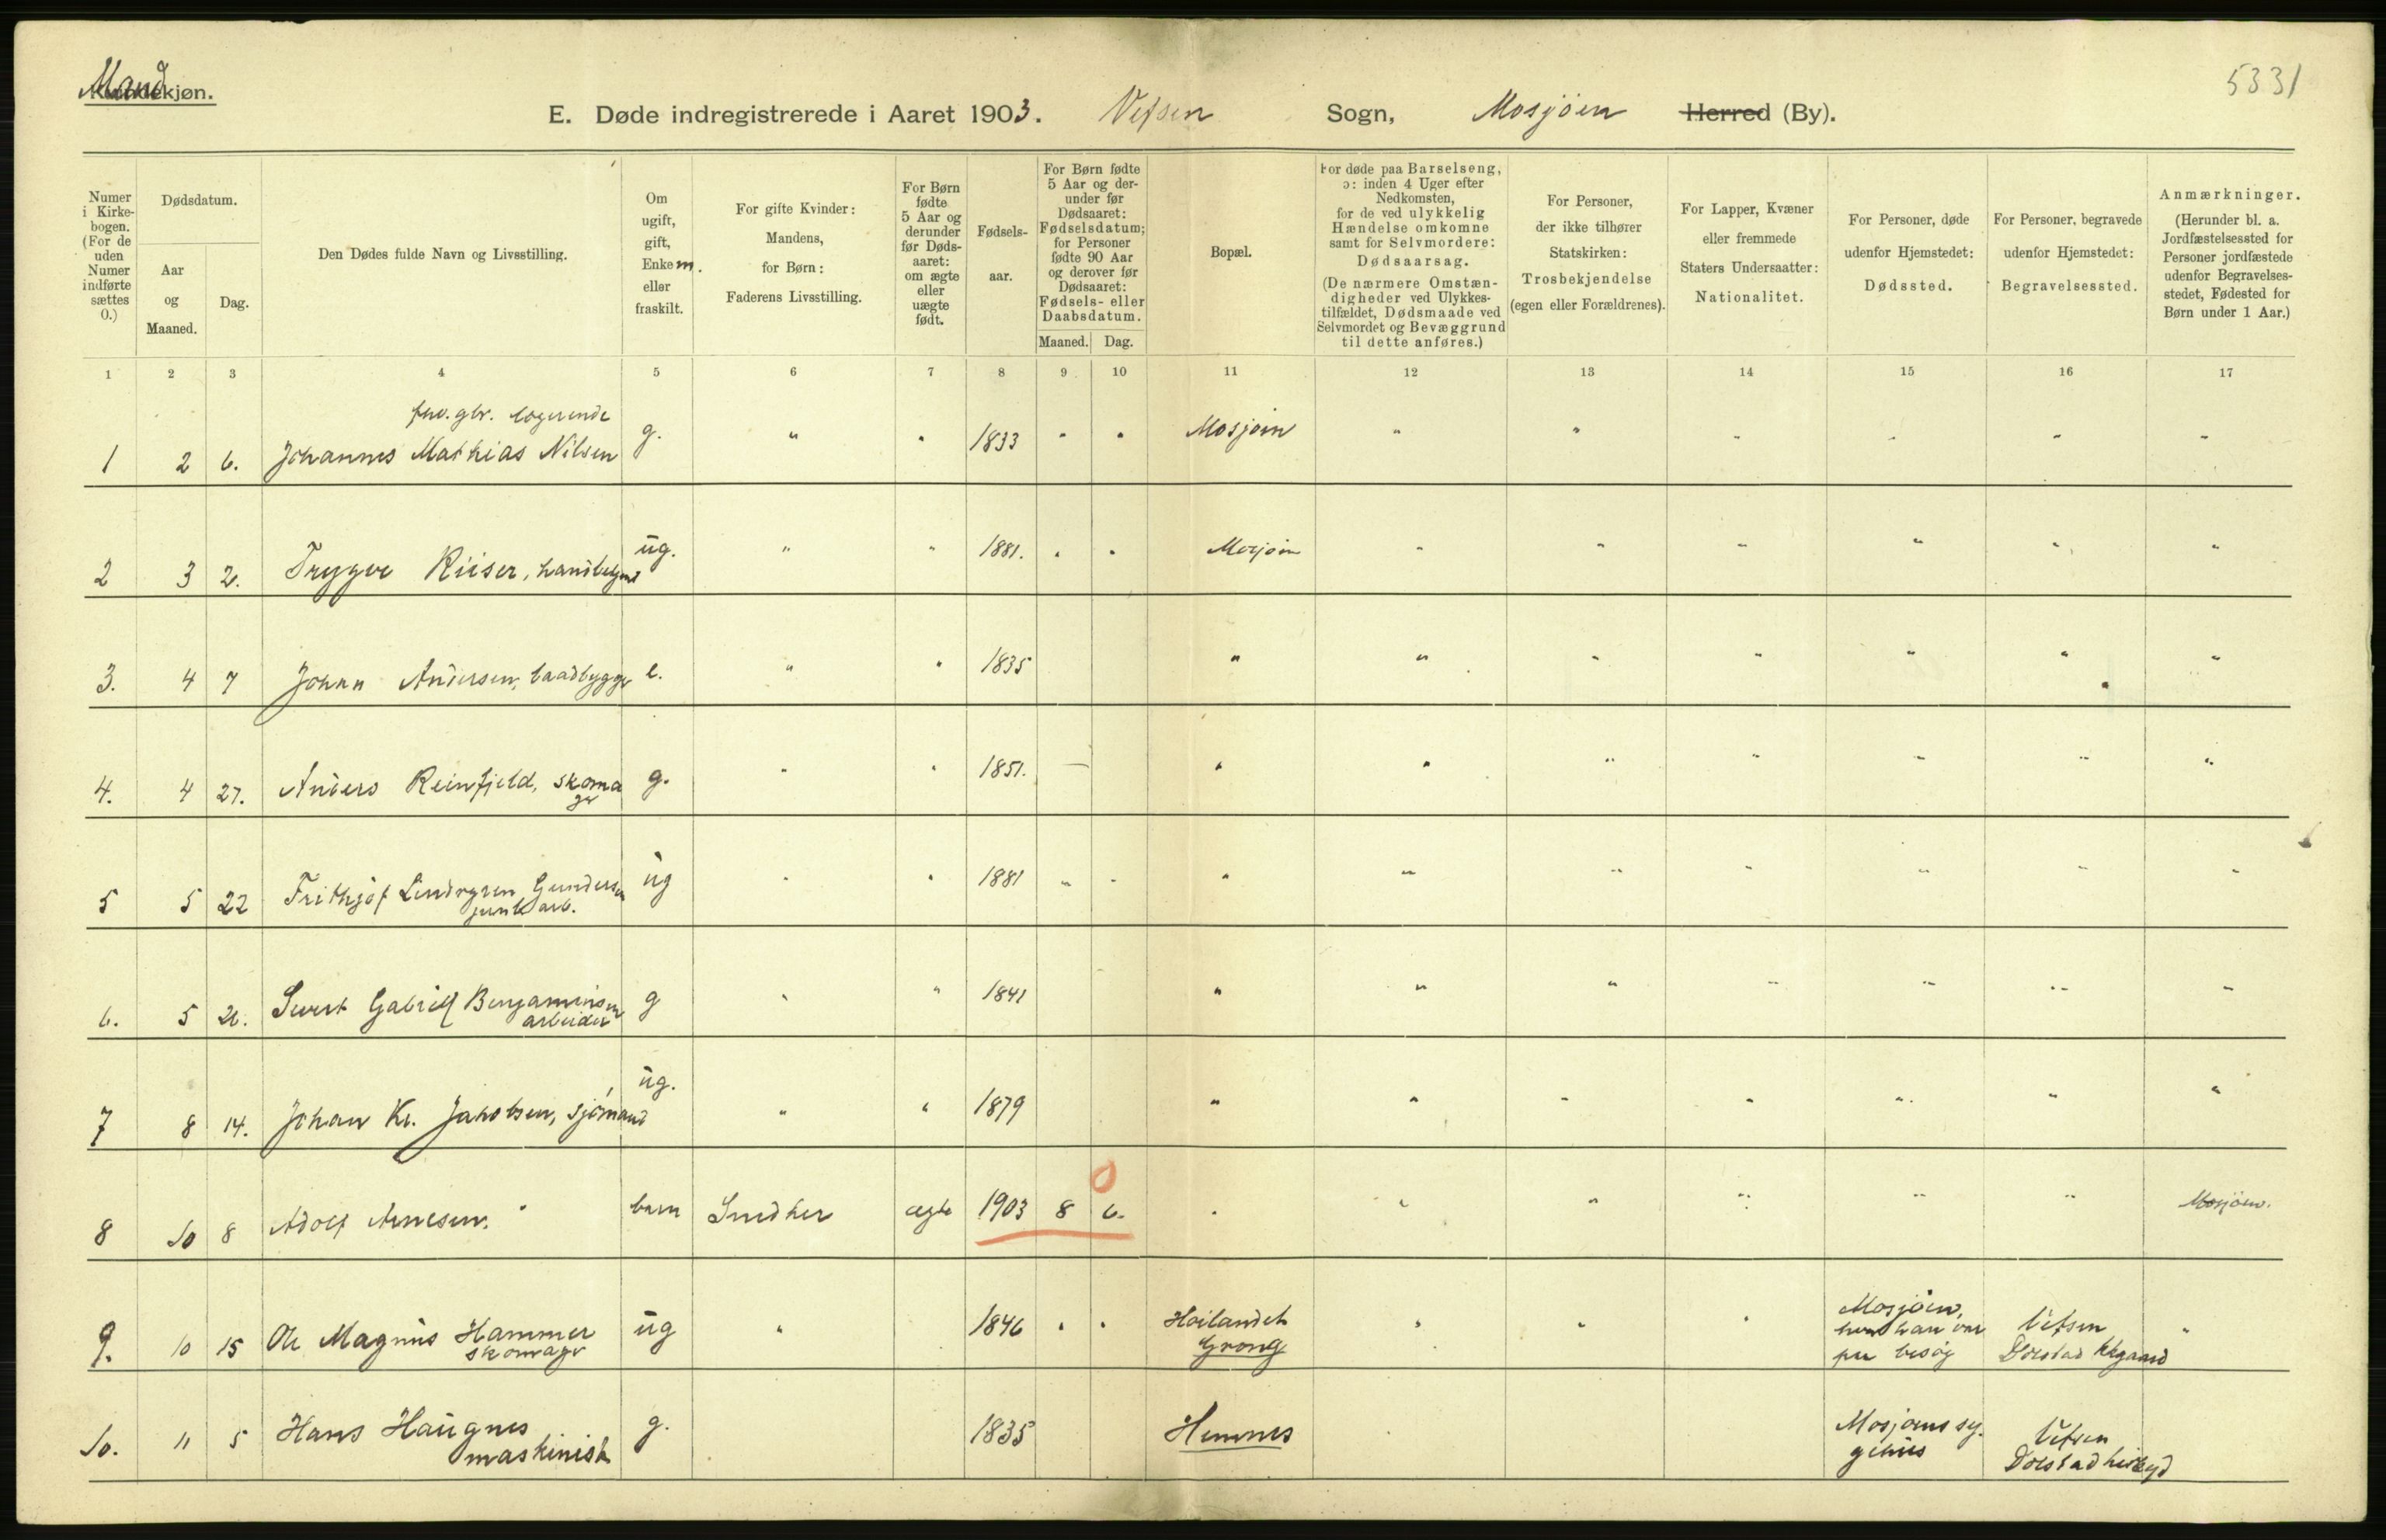 Mandkjøn.
5331
E. Døde indregistrerede i Aaret 1903. Vefsen Sogn, Mosjøen Herred (By).
Numer i Kirkebogen. (For de uden Numer indførte sættes 0.)
Dødsdatum.
Aar og Maaned.
Dag.
Den Dødes fulde Navn og Livsstilling.
Om ugift, gift, Enkem. eller fraskilt.
For gifte Kvinder: Mandens, for Børn: Faderens Livsstilling.
For Børn fødte 5 Aar og derunder før Dødsaaret: om ægte eller uægte født.
Fødselsaar.
For Børn fødte 5 Aar og derunder før Dødsaaret: Fødselsdatum; for Personer fødte 90 Aar og derover før Dødsaaret: Fødsels- eller Daabsdatum.
Maaned. Dag.
Bopæl.
For døde paa Barselseng, ɔ: inden 4 Uger efter Nedkomsten, for de ved ulykkelig Hændelse omkomne samt for Selvmordere: Dødsaarsag.
(De nærmere Omstændigheder ved Ulykkestilfældet, Dødsmaade ved Selvmordet og Bevæggrund til dette anføres.)
For Personer, der ikke tilhører Statskirken: Trosbekjendelse (egen eller Forældrenes).
For Lapper, Kvæner eller fremmede Staters Undersaatter: Nationalitet.
For Personer, døde udenfor Hjemstedet: Dødssted.
For Personer, begravede udenfor Hjemstedet: Begravelsessted.
Anmærkninger. (Herunder bl. a. Jordfæstelsessted for Personer jordfæstede udenfor Begravelsesstedet, Fødested for Børn under 1 Aar.)
1 2 3 4 5 6 7 8 9 10 11 12 13 14 15 16 17
logerende
1 2 6. Johannes Mathias Nilsen g. " " 1833 " " Mosjøen " " " " " "
2 3 2. Trygve Riiser, handelsm ug. " " 1881. " " Mosjøen " " " " " "
3. 4 7 Johan Andersen, baadbygger e. " " 1835 " " " " " " "
4. 4 27. Anders Reinfjeld, skomager g. " " 1851. — " " " " " " "
5 5 22 Frithjof Lindgren Gundersen ug " " 1881 " " " " " " " " "
arb.
6. 5 26. Sivert Gabriel Benjaminsen g " " 1841 " " " " " " "
arbeider
7 8 14. Johan Kr. Jakobsen, sjømand ug. " " 1879 " " " " " " "
8 10 8 Adolf Arnesen. " barn Snedker ægte 1903 8 6. " " " " " " Mosjøen.
0
9. 10 15 Ole Magnus Hammer ug " 1846 " " Høilandet " " " Mosjøen, Vefsen "
skomager Grong hvor han var Dolstad Kkgaard
paa besøg
10. 11 5 Hans Haugnes g. 1835 Hemnes Mosjøens sy- Vefsen
maskinist gehus Dolstad kirkegd